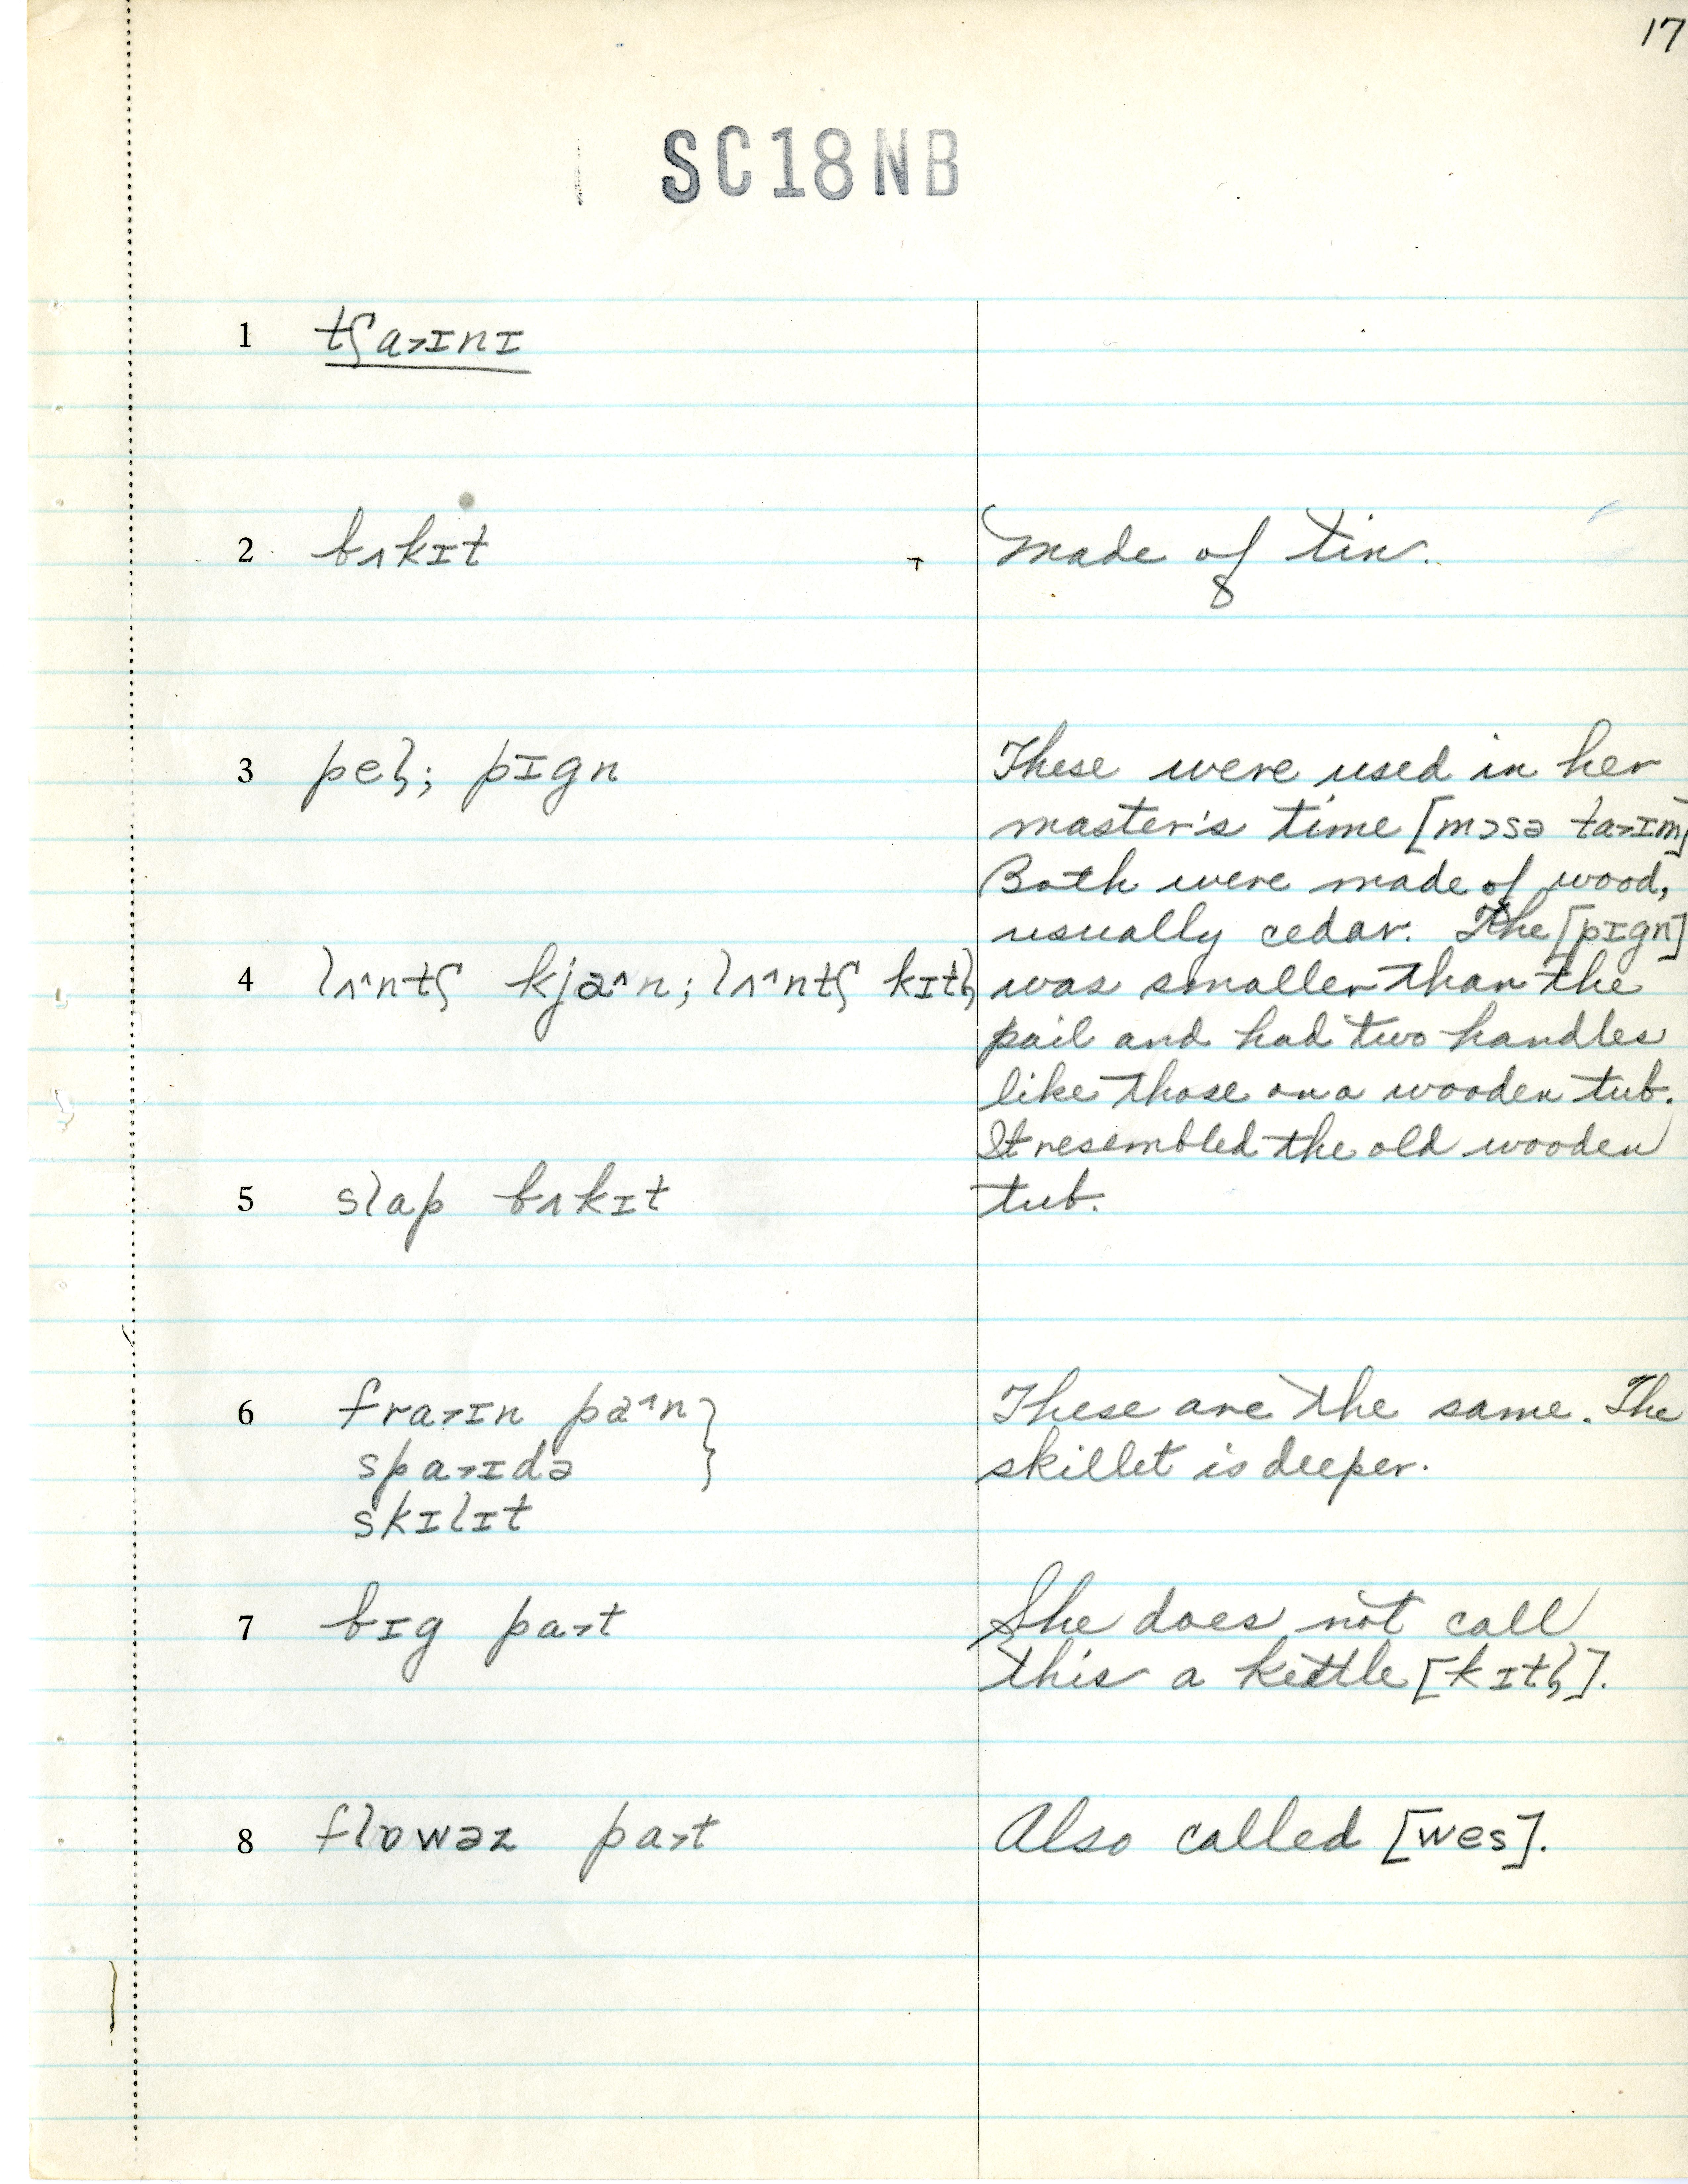 17
SC18NB
1 tʃa˃ɪnɪ
2 bʌkɪt
made of tin.
8
3 pel̩; pɪgn
These were used in her
master's time [mɔsə ta˃ɪm]
Both were made of wood,
usually cedar. The [pɪgn]
4 lʌ^ntʃ kja^n; lʌ^ntʃ kɪtl̩
was smaller than the
pail and had two handles
like those on a wooden tub.
It resembled the old wooden
5 slap bʌkɪt
tub.
6 fra˃ɪn pa^n }
spa˃ɪdə
skɪlɪt
These are the same. The
skillet is deeper.
7 bɪg pa˃t
She does not call
this a kettle [kɪtl̩].
8 flɒwəz pa˃t
Also called [wes].